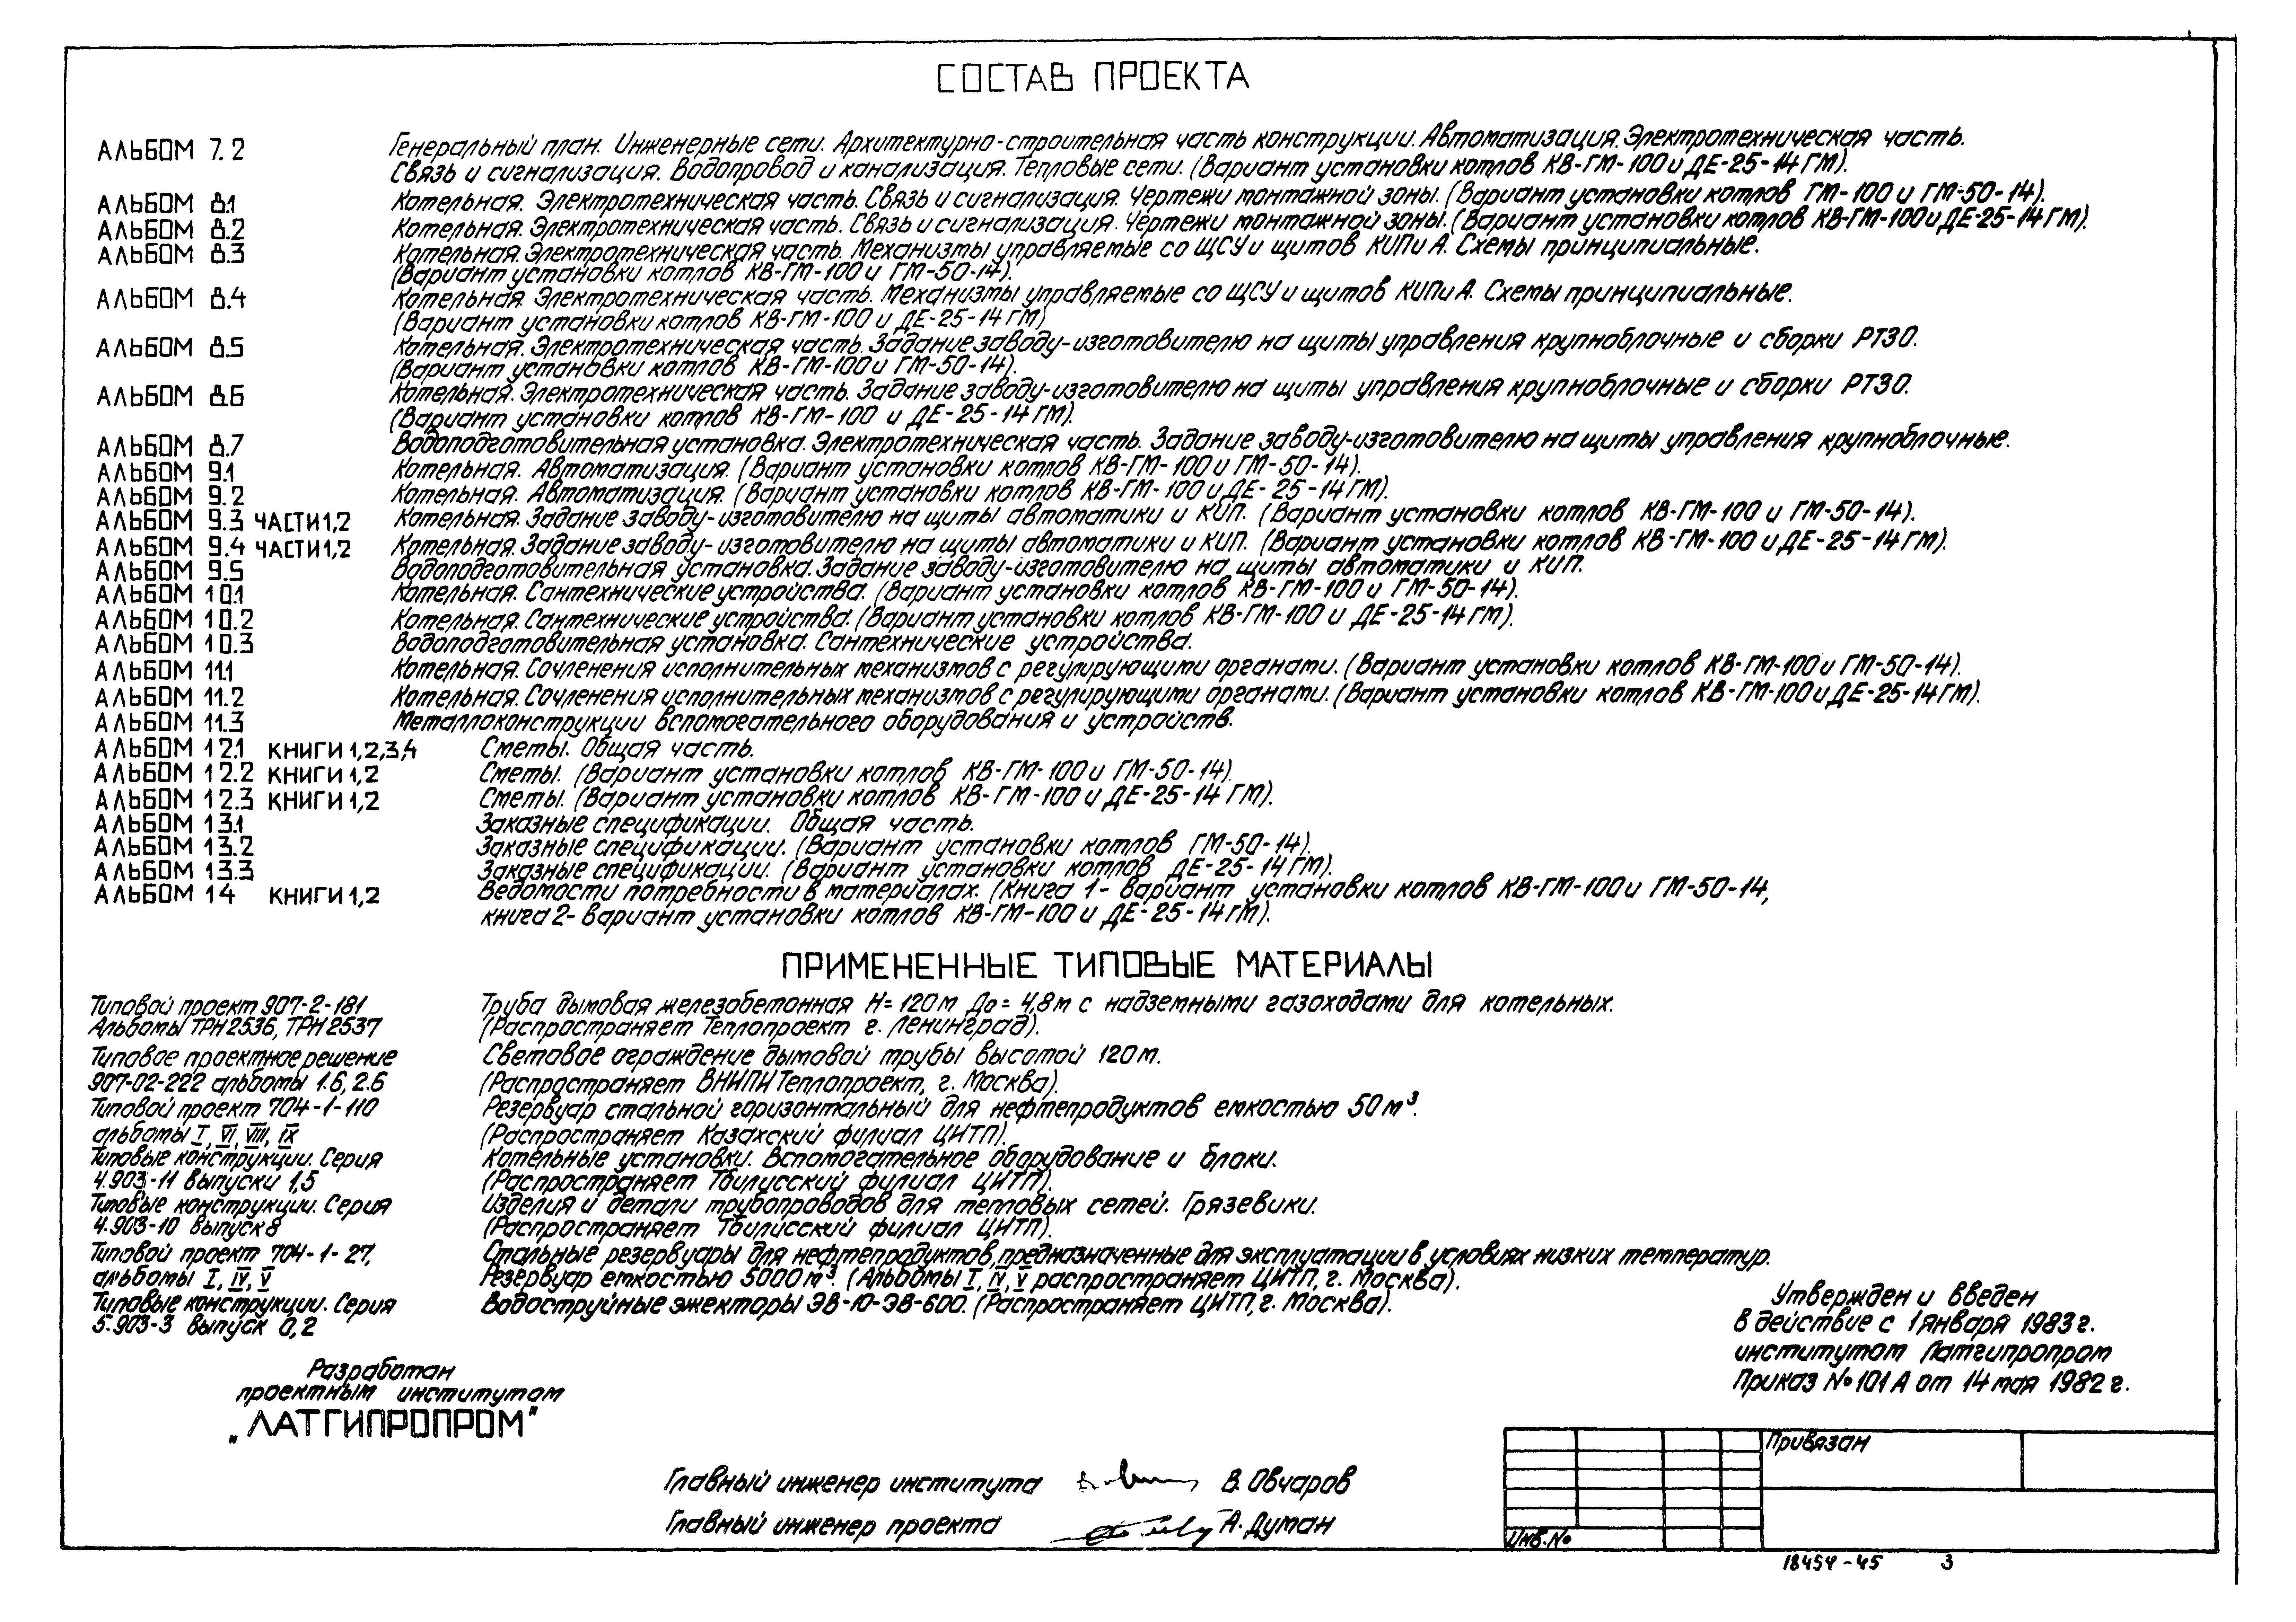 СОСТАВ ПРОЕКТА
АЛЬБОМ 7.2 Генеральный план. Инженерные сети. Архитектурно-строительная часть конструкции. Автоматизация. Электротехническая часть.
Связь и сигнализация. Водопровод и канализация. Тепловые сети. (Вариант установки котлов КВ-ГМ-100 и ДЕ-25-14 ГМ).
АЛЬБОМ 8.1 Котельная. Электротехническая часть. Связь и сигнализация. Чертежи монтажной зоны. (Вариант установки котлов ГМ-100 и ГМ-50-14).
АЛЬБОМ 8.2 Котельная. Электротехническая часть. Связь и сигнализация. Чертежи монтажной зоны. (Вариант установки котлов КВ-ГМ-100 и ДЕ-25-14 ГМ).
АЛЬБОМ 8.3 Котельная. Электротехническая часть. Механизмы управляемые со ЩСУ и щитов КИП и А. Схемы принципиальные.
(Вариант установки котлов КВ-ГМ-100 и ГМ-50-14).
АЛЬБОМ 8.4 Котельная. Электротехническая часть. Механизмы управляемые со ЩСУ и щитов КИП и А. Схемы принципиальные.
(Вариант установки котлов КВ-ГМ-100 и ДЕ-25-14 ГМ)
АЛЬБОМ 8.5 Котельная. Электротехническая часть. Задание заводу-изготовителю на щиты управления крупноблочные и сборки РТЗО.
(Вариант установки котлов КВ-ГМ-100 и ГМ-50-14).
АЛЬБОМ 8.6 Котельная. Электротехническая часть. Задание заводу-изготовителю на щиты управления крупноблочные и сборки РТЗО.
(Вариант установки котлов КВ-ГМ-100 и ДЕ-25-14 ГМ).
АЛЬБОМ 8.7 Водоподготовительная установка. Электротехническая часть. Задание заводу-изготовителю на щиты управления крупноблочные.
АЛЬБОМ 9.1 Котельная. Автоматизация. (Вариант установки котлов КВ-ГМ-100 и ГМ-50-14).
АЛЬБОМ 9.2 Котельная. Автоматизация. (Вариант установки котлов КВ-ГМ-100 и ДЕ-25-14 ГМ).
АЛЬБОМ 9.3 ЧАСТИ 1,2 Котельная. Задание заводу-изготовителю на щиты автоматики и КИП. (Вариант установки котлов КВ-ГМ-100 и ГМ-50-14).
АЛЬБОМ 9.4 ЧАСТИ 1,2 Котельная. Задание заводу-изготовителю на щиты автоматики и КИП. (Вариант установки котлов КВ-ГМ-100 и ДЕ-25-14 ГМ).
АЛЬБОМ 9.5 Водоподготовительная установка. Задание заводу-изготовителю на щиты автоматики и КИП.
АЛЬБОМ 10.1 Котельная. Сантехнические устройства. (Вариант установки котлов КВ-ГМ-100 и ГМ-50-14).
АЛЬБОМ 10.2 Котельная. Сантехнические устройства. (Вариант установки котлов КВ-ГМ-100 и ДЕ-25-14 ГМ).
АЛЬБОМ 10.3 Водоподготовительная установка. Сантехнические устройства.
АЛЬБОМ 11.1 Котельная. Сочленения исполнительных механизмов с регулирующими органами. (Вариант установки котлов КВ-ГМ-100 и ГМ-50-14).
АЛЬБОМ 11.2 Котельная. Сочленения исполнительных механизмов с регулирующими органами. (Вариант установки котлов КВ-ГМ-100 и ДЕ-25-14 ГМ).
АЛЬБОМ 11.3 Металлоконструкции вспомогательного оборудования и устройств.
АЛЬБОМ 12.1 КНИГИ 1,2,3,4 Сметы. Общая часть.
АЛЬБОМ 12.2 КНИГИ 1,2 Сметы. (Вариант установки котлов КВ-ГМ-100 и ГМ-50-14).
АЛЬБОМ 12.3 КНИГИ 1,2 Сметы. (Вариант установки котлов КВ-ГМ-100 и ДЕ-25-14 ГМ).
АЛЬБОМ 13.1 Заказные спецификации. Общая часть.
АЛЬБОМ 13.2 Заказные спецификации. (Вариант установки котлов ГМ-50-14).
АЛЬБОМ 13.3 Заказные спецификации. (Вариант установки котлов ДЕ-25-14 ГМ).
АЛЬБОМ 14 КНИГИ 1,2 Ведомости потребности в материалах. (Книга 1- вариант установки котлов КВ-ГМ-100 и ГМ-50-14,
книга 2- вариант установки котлов КВ-ГМ-100 и ДЕ-25-14 ГМ).
ПРИМЕНЕННЫЕ ТИПОВЫЕ МАТЕРИАЛЫ
Типовой проект 907-2-181 Труба дымовая железобетонная Н=120м До=4,8м с надземными газоходами для котельных.
Альбомы ТРН 2536, ТРН 2537 (Распространяет Теплопроект г. Ленинград).
Типовое проектное решение Световое ограждение дымовой трубы высотой 120м.
907-02-222 альбомы 1.6, 2.6 (Распространяет ВНИПИТеплопроект, г. Москва).
Типовой проект 704-1-110 Резервуар стальной горизонтальный для нефтепродуктов емкостью 50м³.
альбомы I, VI, VIII, IX (Распространяет Казахский филиал ЦИТП).
Типовые конструкции. Серия Котельные установки. Вспомогательное оборудование и блоки.
4.903-11 выпуски 1,5 (Распространяет Тбилисский филиал ЦИТП).
Типовые конструкции. Серия Изделия и детали трубопроводов для тепловых сетей. Грязевики.
4.903-10 выпуск 8 (Распространяет Тбилисский филиал ЦИТП).
Типовой проект 704-1-27, Стальные резервуары для нефтепродуктов, предназначенные для эксплуатации в условиях низких температур.
альбомы I, IV, V Резервуар емкостью 5000м³. (Альбомы I, IV, V распространяет ЦИТП, г. Москва).
Типовые конструкции. Серия Водоструйные эжекторы ЭВ-10-ЭВ-600. (Распространяет ЦИТП, г. Москва).
5.903-3 выпуск 0,2
Утвержден и введен
в действие с 1 января 1983 г.
институтом Латгипропром
Приказ № 101 А от 14 мая 1982 г.
Разработан
проектным институтом
„ЛАТГИПРОПРОМ"
Привязан
Главный инженер института В. Овчаров
Главный инженер проекта А. Думан
Инв. №
18454-45 3